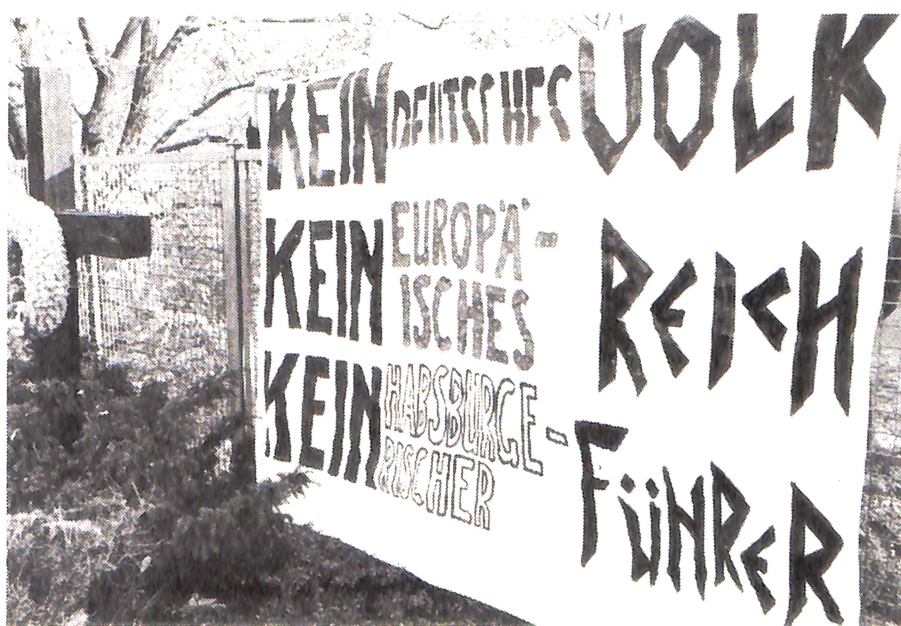 KEIN DEUTSCHES VOLK
KEIN EUROPÄ-
ISCHES REICH
KEIN HABSBURGE-
RISCHER FÜHRER